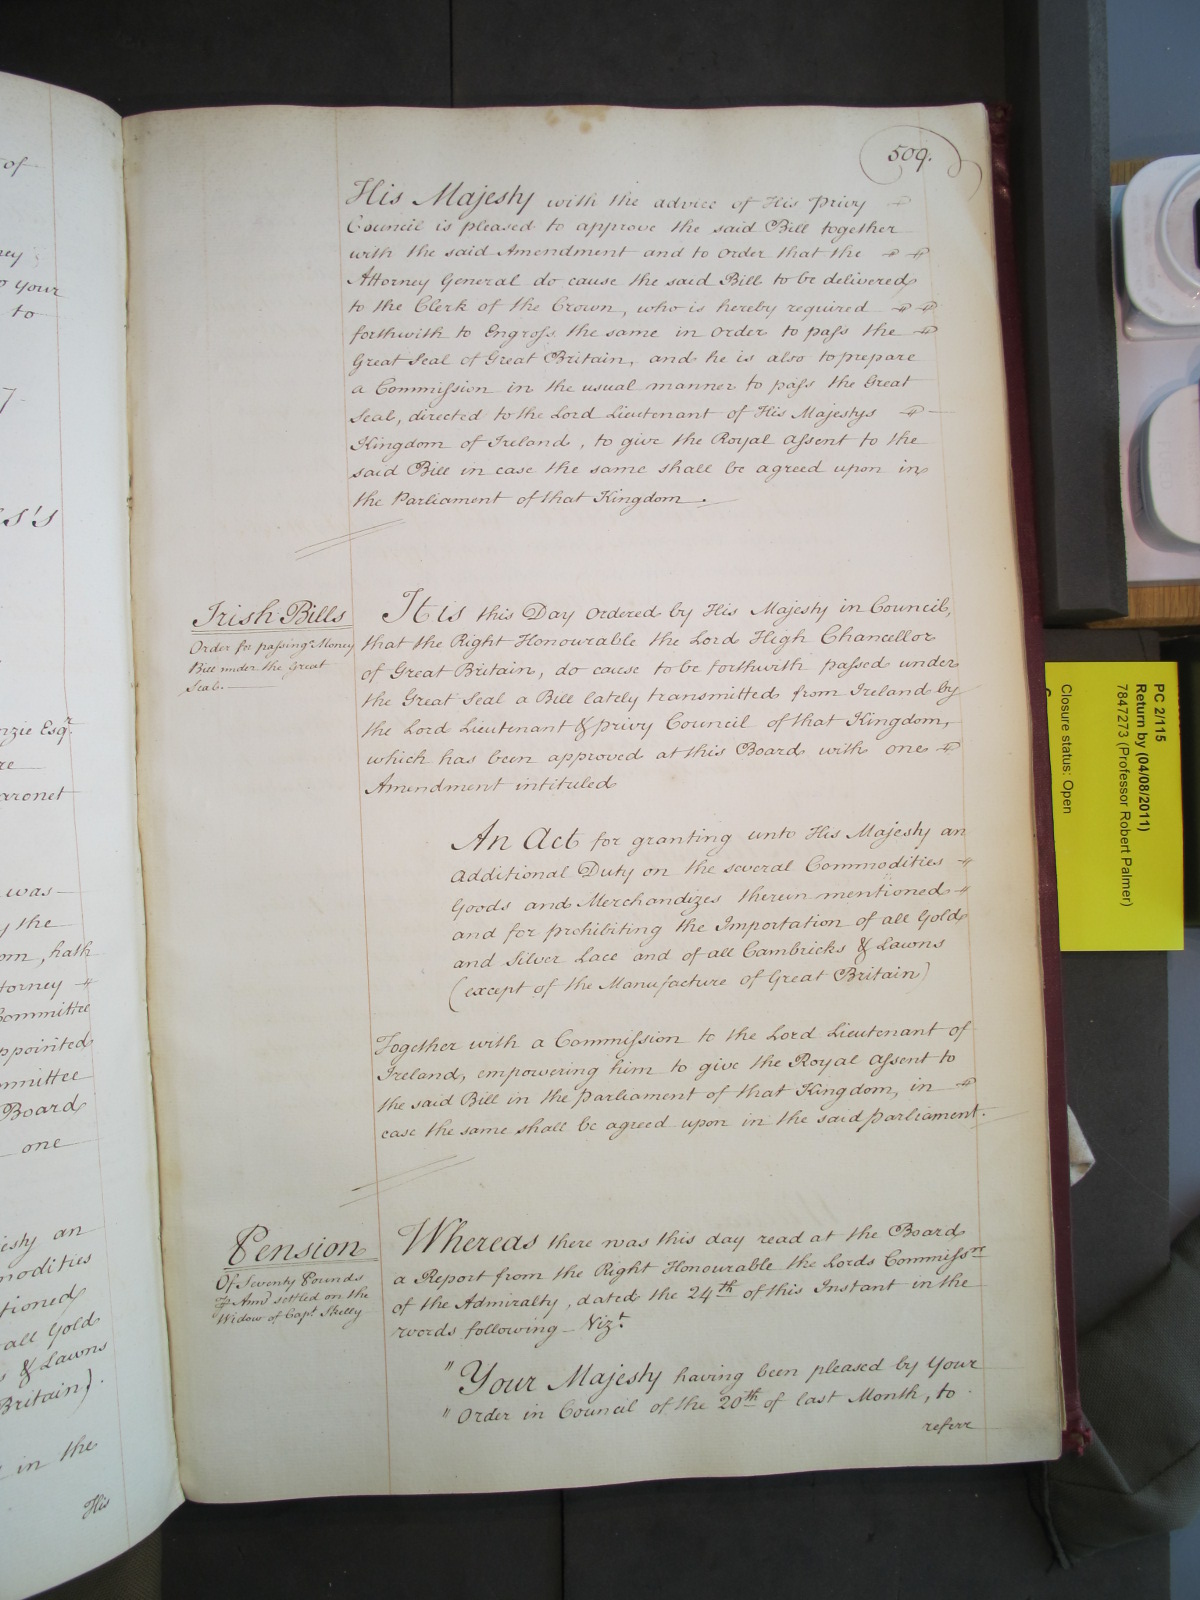 of
ney
o your
to
7.
es's
nzie Esqr.
re
aronet
was
y the
om, hath
torney
Committee
ppointed
mmittee
Board
one
esty an
modities
tioned
all Gold
s & Lawns
Britain).
in the
His
509.
His Majesty with the advice of His Privy
Council is pleased to approve the said Bill together
with the said Amendment and to order that the
Attorney General do cause the said Bill to be delivered
to the Clerk of the Crown, who is hereby required
forthwith to Engross the same in order to pass the
Great Seal of Great Britain, and he is also to prepare
a Commission in the usual manner to pass the Great
Seal, directed to the Lord Lieutenant of His Majestys
Kingdom of Ireland, to give the Royal Assent to the
said Bill in case the same shall be agreed upon in
the Parliament of that Kingdom.
Irish Bills
Order for passing a Money
Bill under the Great
Seal.
It is this Day ordered by His Majesty in Council,
that the Right Honourable the Lord High Chancellor
of Great Britain, do cause to be forthwith passed under
the Great Seal a Bill lately transmitted from Ireland by
the Lord Lieutenant & privy Council of that Kingdom,
which has been approved at this Board with one
Amendment intituled
An Act for granting unto His Majesty an
additional Duty on the several Commodities
Goods and Merchandizes therein mentioned
and for prohibiting the Importation of all Gold
and Silver Lace and of all Cambricks & Lawns
(except of the Manufacture of Great Britain)
Together with a Commission to the Lord Lieutenant of
Ireland, empowering him to give the Royal Assent to
the said Bill in the Parliament of that Kingdom, in
case the same shall be agreed upon in the said parliament.
Pension
Of Seventy Pounds
P Annm settled on the
Widow of Capt Skelly
Whereas there was this day read at the Board
a Report from the Right Honourable the Lords Commissrs
of the Admiralty, dated the 24th of this Instant in the
words following Vizt.
" Your Majesty having been pleased by Your
" Order in Council of the 20th of last Month, to
referr
PC 2/115
Return by (04/08/2011)
7847273 (Professor Robert Palmer)
Closure status: Open